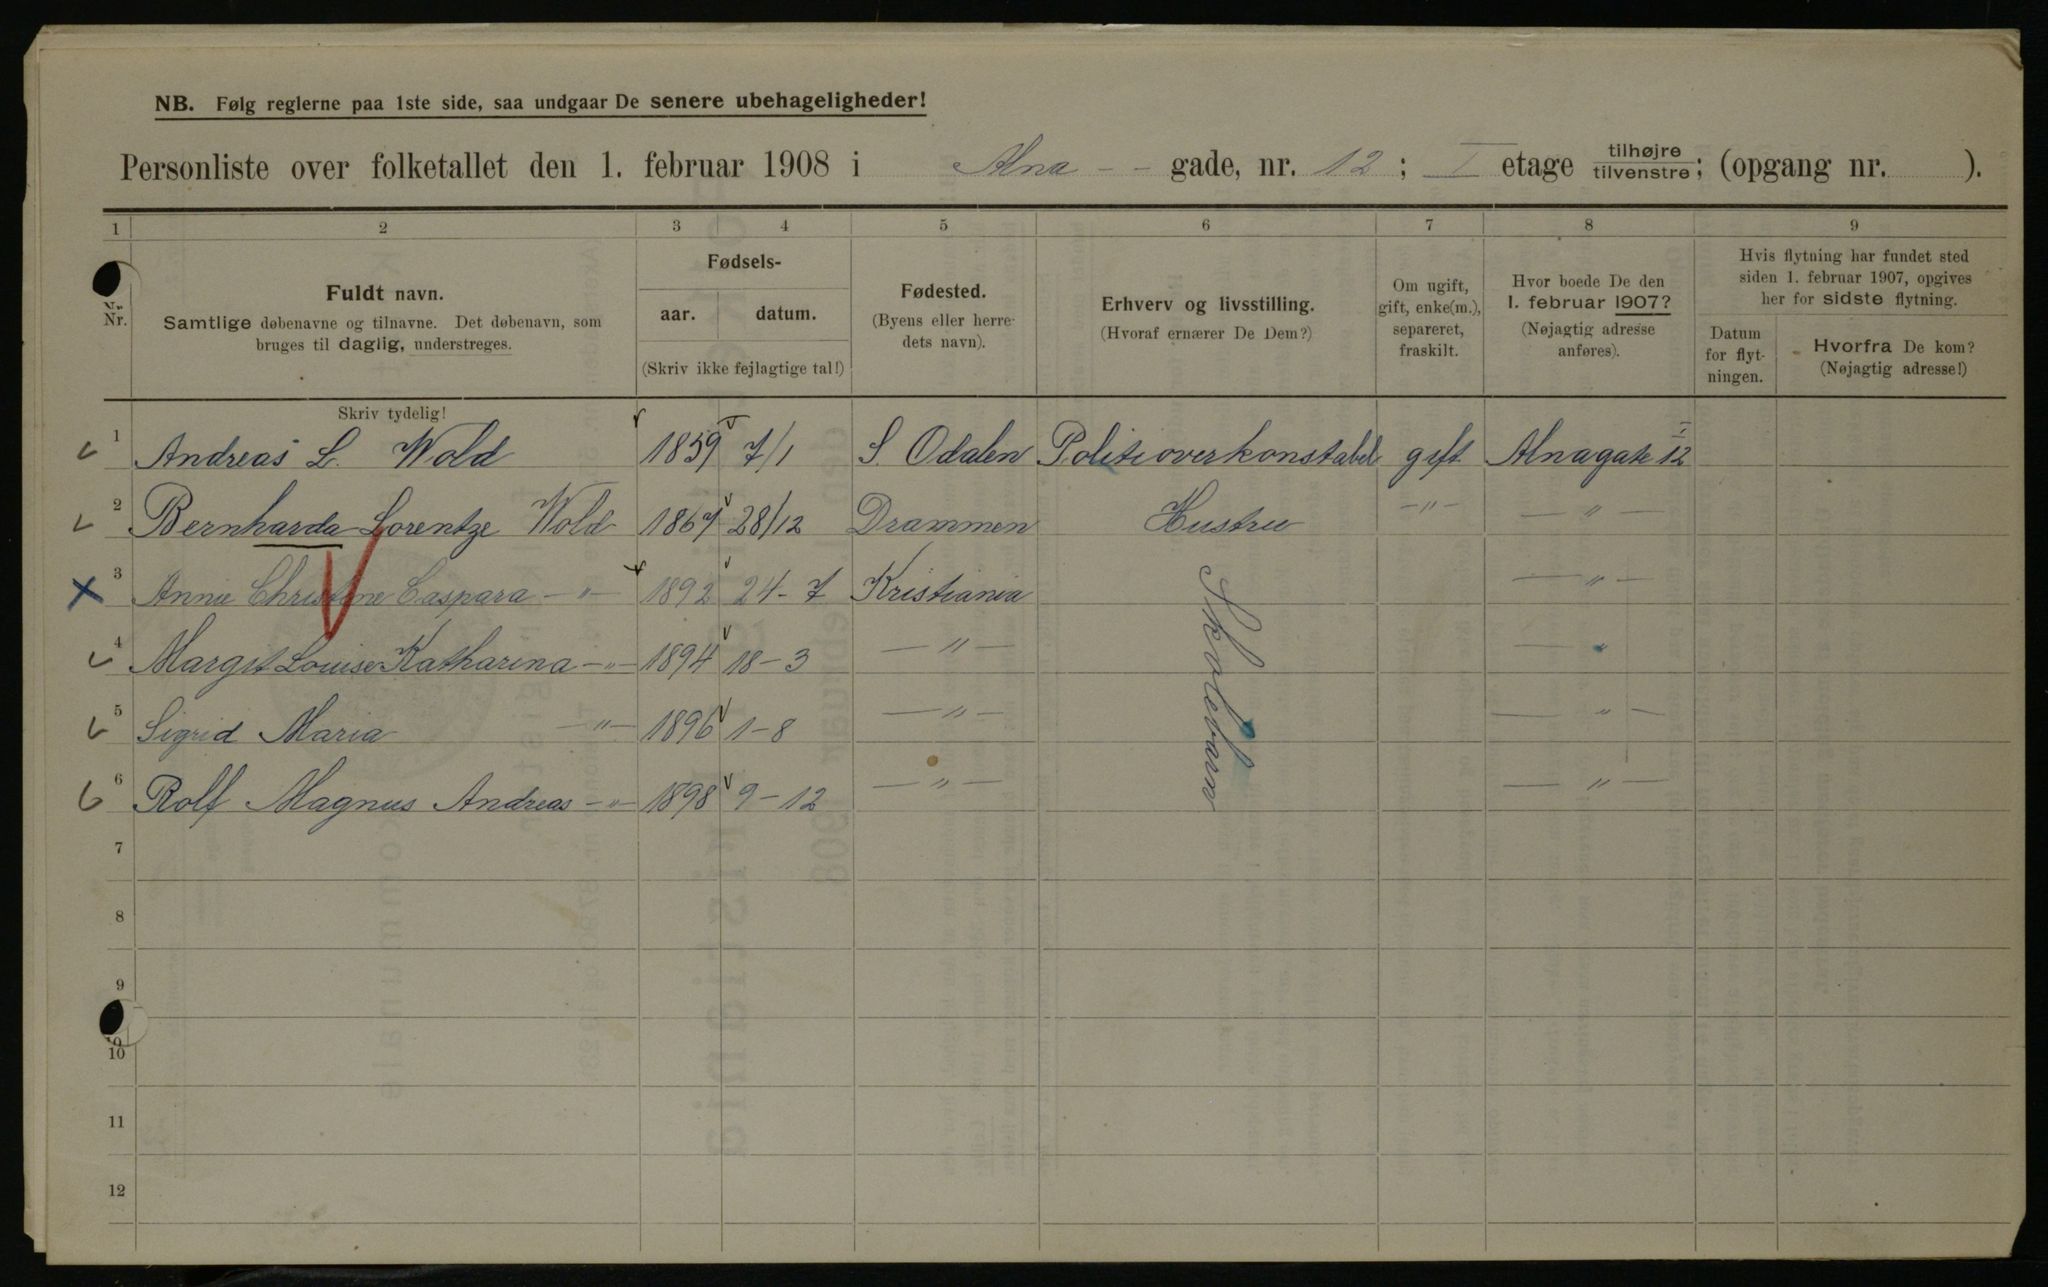 NB. Følg reglerne paa 1ste side, saa undgaar De senere ubehageligheder!
Personliste over folketallet den 1. februar 1908 i Alna - - gade, nr. 12 ; I etage tilhøjre tilvenstre ; (opgang nr. ).
1 2 3 4 5 6 7 8 9
Nr. Fuldt navn. Samtlige døbenavne og tilnavne. Det døbenavn, som bruges til daglig, understreges.
Fødsels- aar. datum. (Skriv ikke fejlagtige tal!)
Fødested. (Byens eller herredets navn).
Erhverv og livsstilling. (Hvoraf ernærer De Dem?)
Om ugift, gift, enke(m.), separeret, fraskilt.
Hvor boede De den 1. februar 1907? (Nøjagtig adresse anføres).
Hvis flytning har fundet sted siden 1. februar 1907, opgives her for sidste flytning.
Datum for flytningen. Hvorfra De kom? (Nøjagtig adresse!)
Skriv tydelig!
1 Andreas L. Wold 1859 7/1 S. Odalen Politioverkonstabel gift Alnagate 12 I
2 Bernharda Lorentze Wold 1867 28/12 Drammen Hustru —"— —"—
3 Anna Christine Caspara —"— 1892 24-7 Kristiania Skolebarn —"—
4 Margit Louise Katharina —"— 1894 18-3 —"— —"—
5 Sigrid Maria —"— 1896 1-8 —"— —"—
6 Rolf Magnus Andreas —"— 1898 9-12 —"— —"—
7
8
9
10
11
12